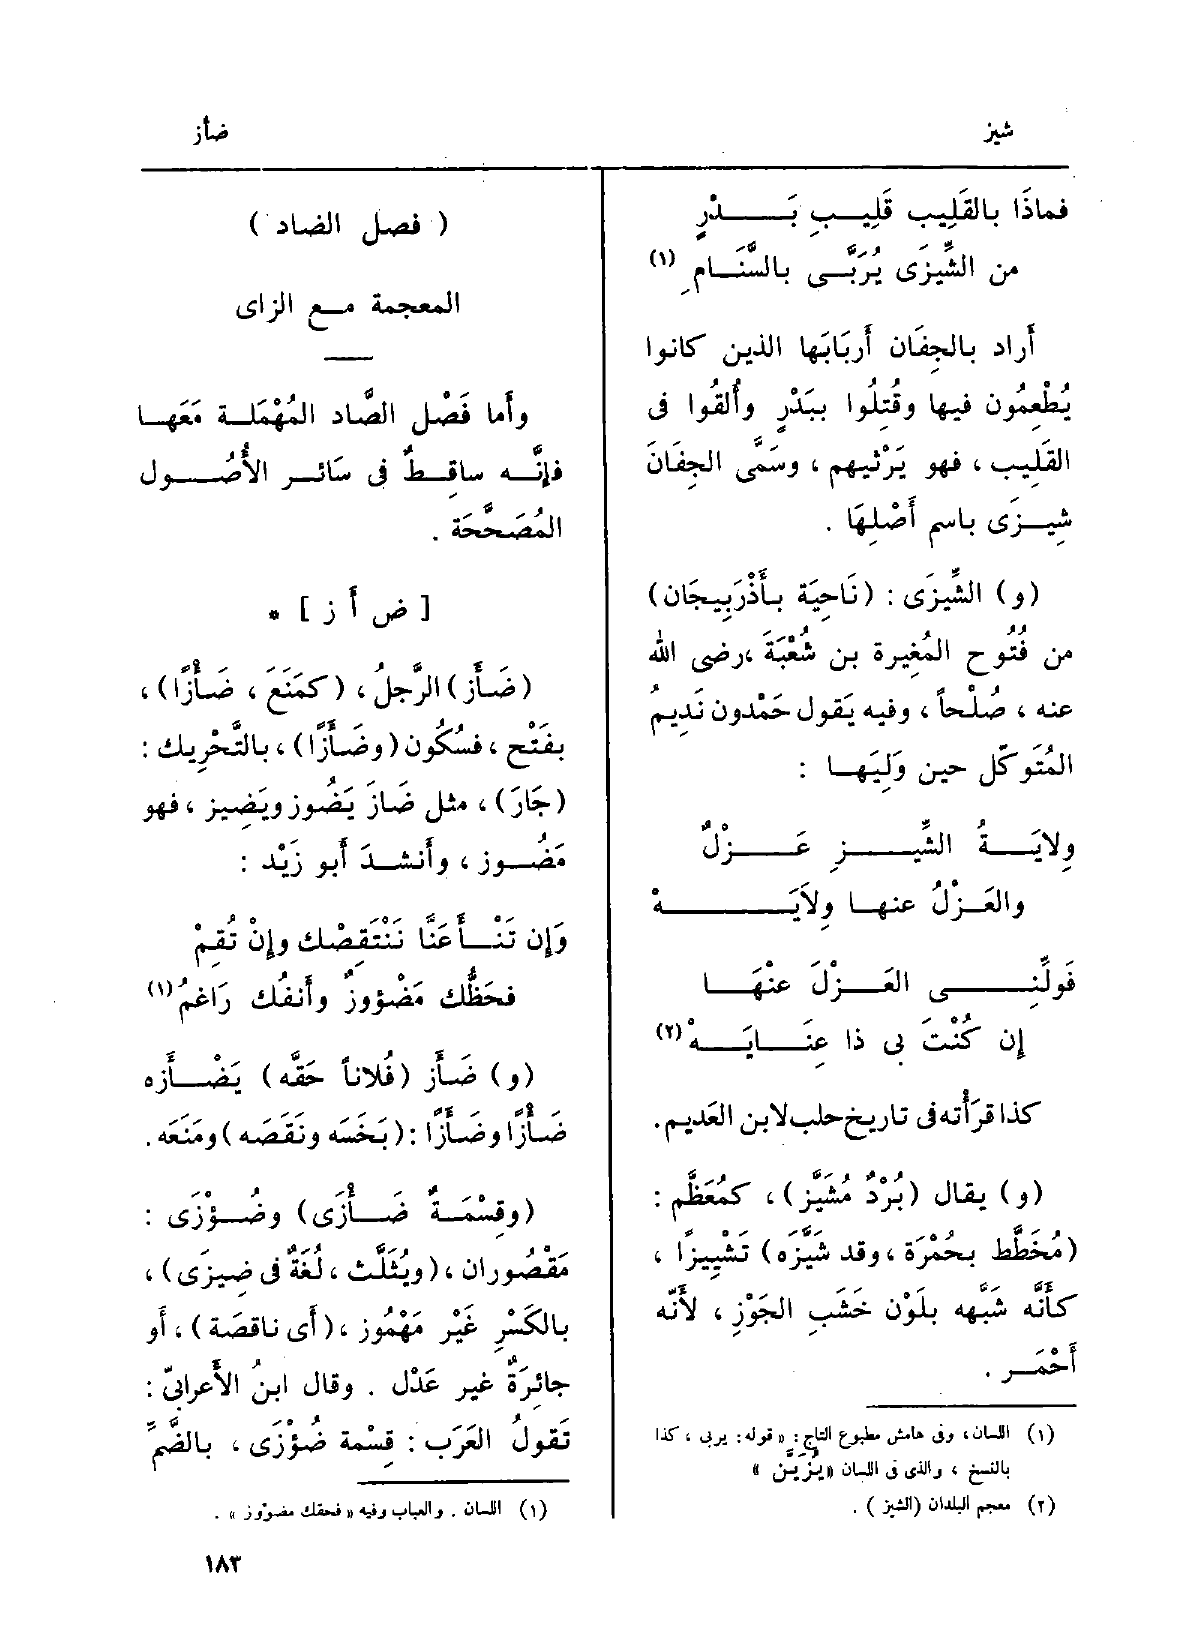 شيز
ضأز
فماذَا بالقَلِيب قَلِيبِ بَدْرٍ
من الشِّيزَى يُرَبَّى بالسَّنَامِ (١)
أراد بالجِفَان أرَبَابَها الذين كانوا
يُطْعِمُون فيها وقُتِلُوا ببَدْرٍ وأُلقُوا فى
القَلِيب ، فهو يَرْثيهم ، وسَمَّى الجِفَانَ
شِيزَى باسم أَصْلِهَا .
(و) الشِّيزَى : (نَاحِيَة بأَذْرَبِيجَان)
من فُتُوح المُغِيرة بن شُعْبَةَ ،رضى الله
عنه ، صُلْحاً ، وفيه يَقول حَمْدون نَدِيمُ
المُتَوكِّل حين وَلِيَها :
وِلايَةُ الشِّيزِ عَزْلٌ
والعَزْلُ عنها وِلاَيَهْ
فَولِّنِى العَزْلَ عنْهَا
إن كُنْتَ بى ذا عِنَايَهْ (٢)
كذا قرَأته فى تاريخ حلب لابن العَدِيم.
(و) يقال (بُرْدٌ مُشَيَّز) ، كمُعَظَّم :
(مُخَطَّط بحُمْرَة ، وقد شَيَّزَه) تَشْيِيزًا ،
كأَنَّه شَبَّهه بلَوْن خَشَبِ الجَوْزِ ، لأَنَّه
أَحْمَر .
(١) اللسان، وفى هامش مطبوع التاج: «قوله: يربى ، كذا
بالنسخ ، والذى فى اللسان «يُزَيَّن »
(٢) معجم البلدان (الشيز ) .
( فصل الضاد )
المعجمة مع الزاى
وأَما فَصْل الصَّاد المُهْمَلة مَعَها
فإِنَّه ساقِطٌ فى سَائر الأُصُول
المُصَحَّحَة .
[ ض أ ز ] *
(ضَأَز) الرَّجلُ ، (كمَنَعَ ، ضَأْزًا) ،
بفَتْح ، فسُكُون (وضَأَزًا) ، بالتَّحْرِيك :
(جَارَ) ، مثل ضَازَ يَضُوز ويَضِيز ، فهو
مَضُوز ، وأَنشدَ أَبو زَيْد :
وَإن تَنْأَ عَنَّا نَنْتَقِصْك وإِنْ تُقِمْ
فحَظُّك مَضْؤوزٌ وأَنفُك رَاغمُ (١)
(و) ضَأَز (فُلاناً حَقَّه) يَضْأَزه
ضَأْزًا وضَأَزًا : (بَخَسَه ونَقَصَه) ومَنَعَه .
(وقِسْمَةٌ ضَأْزَى) وضُؤْزَى :
مَقْصُوران ، (ويُثَلَّث ، لُغَةٌ فى ضِيزَى) ،
بالكَسْرِ غَيْر مَهْمُوز ، (أَى ناقصَة) ، أَو
جائرَةٌ غير عَدْل . وقال ابنُ الأَعرابىّ :
تَقولُ العَرَب : قِسْمة ضُؤْزَى ، بالضَّمِّ
(١) اللسان . والعباب وفيه «فحقك مضؤوز » .
١٨٣